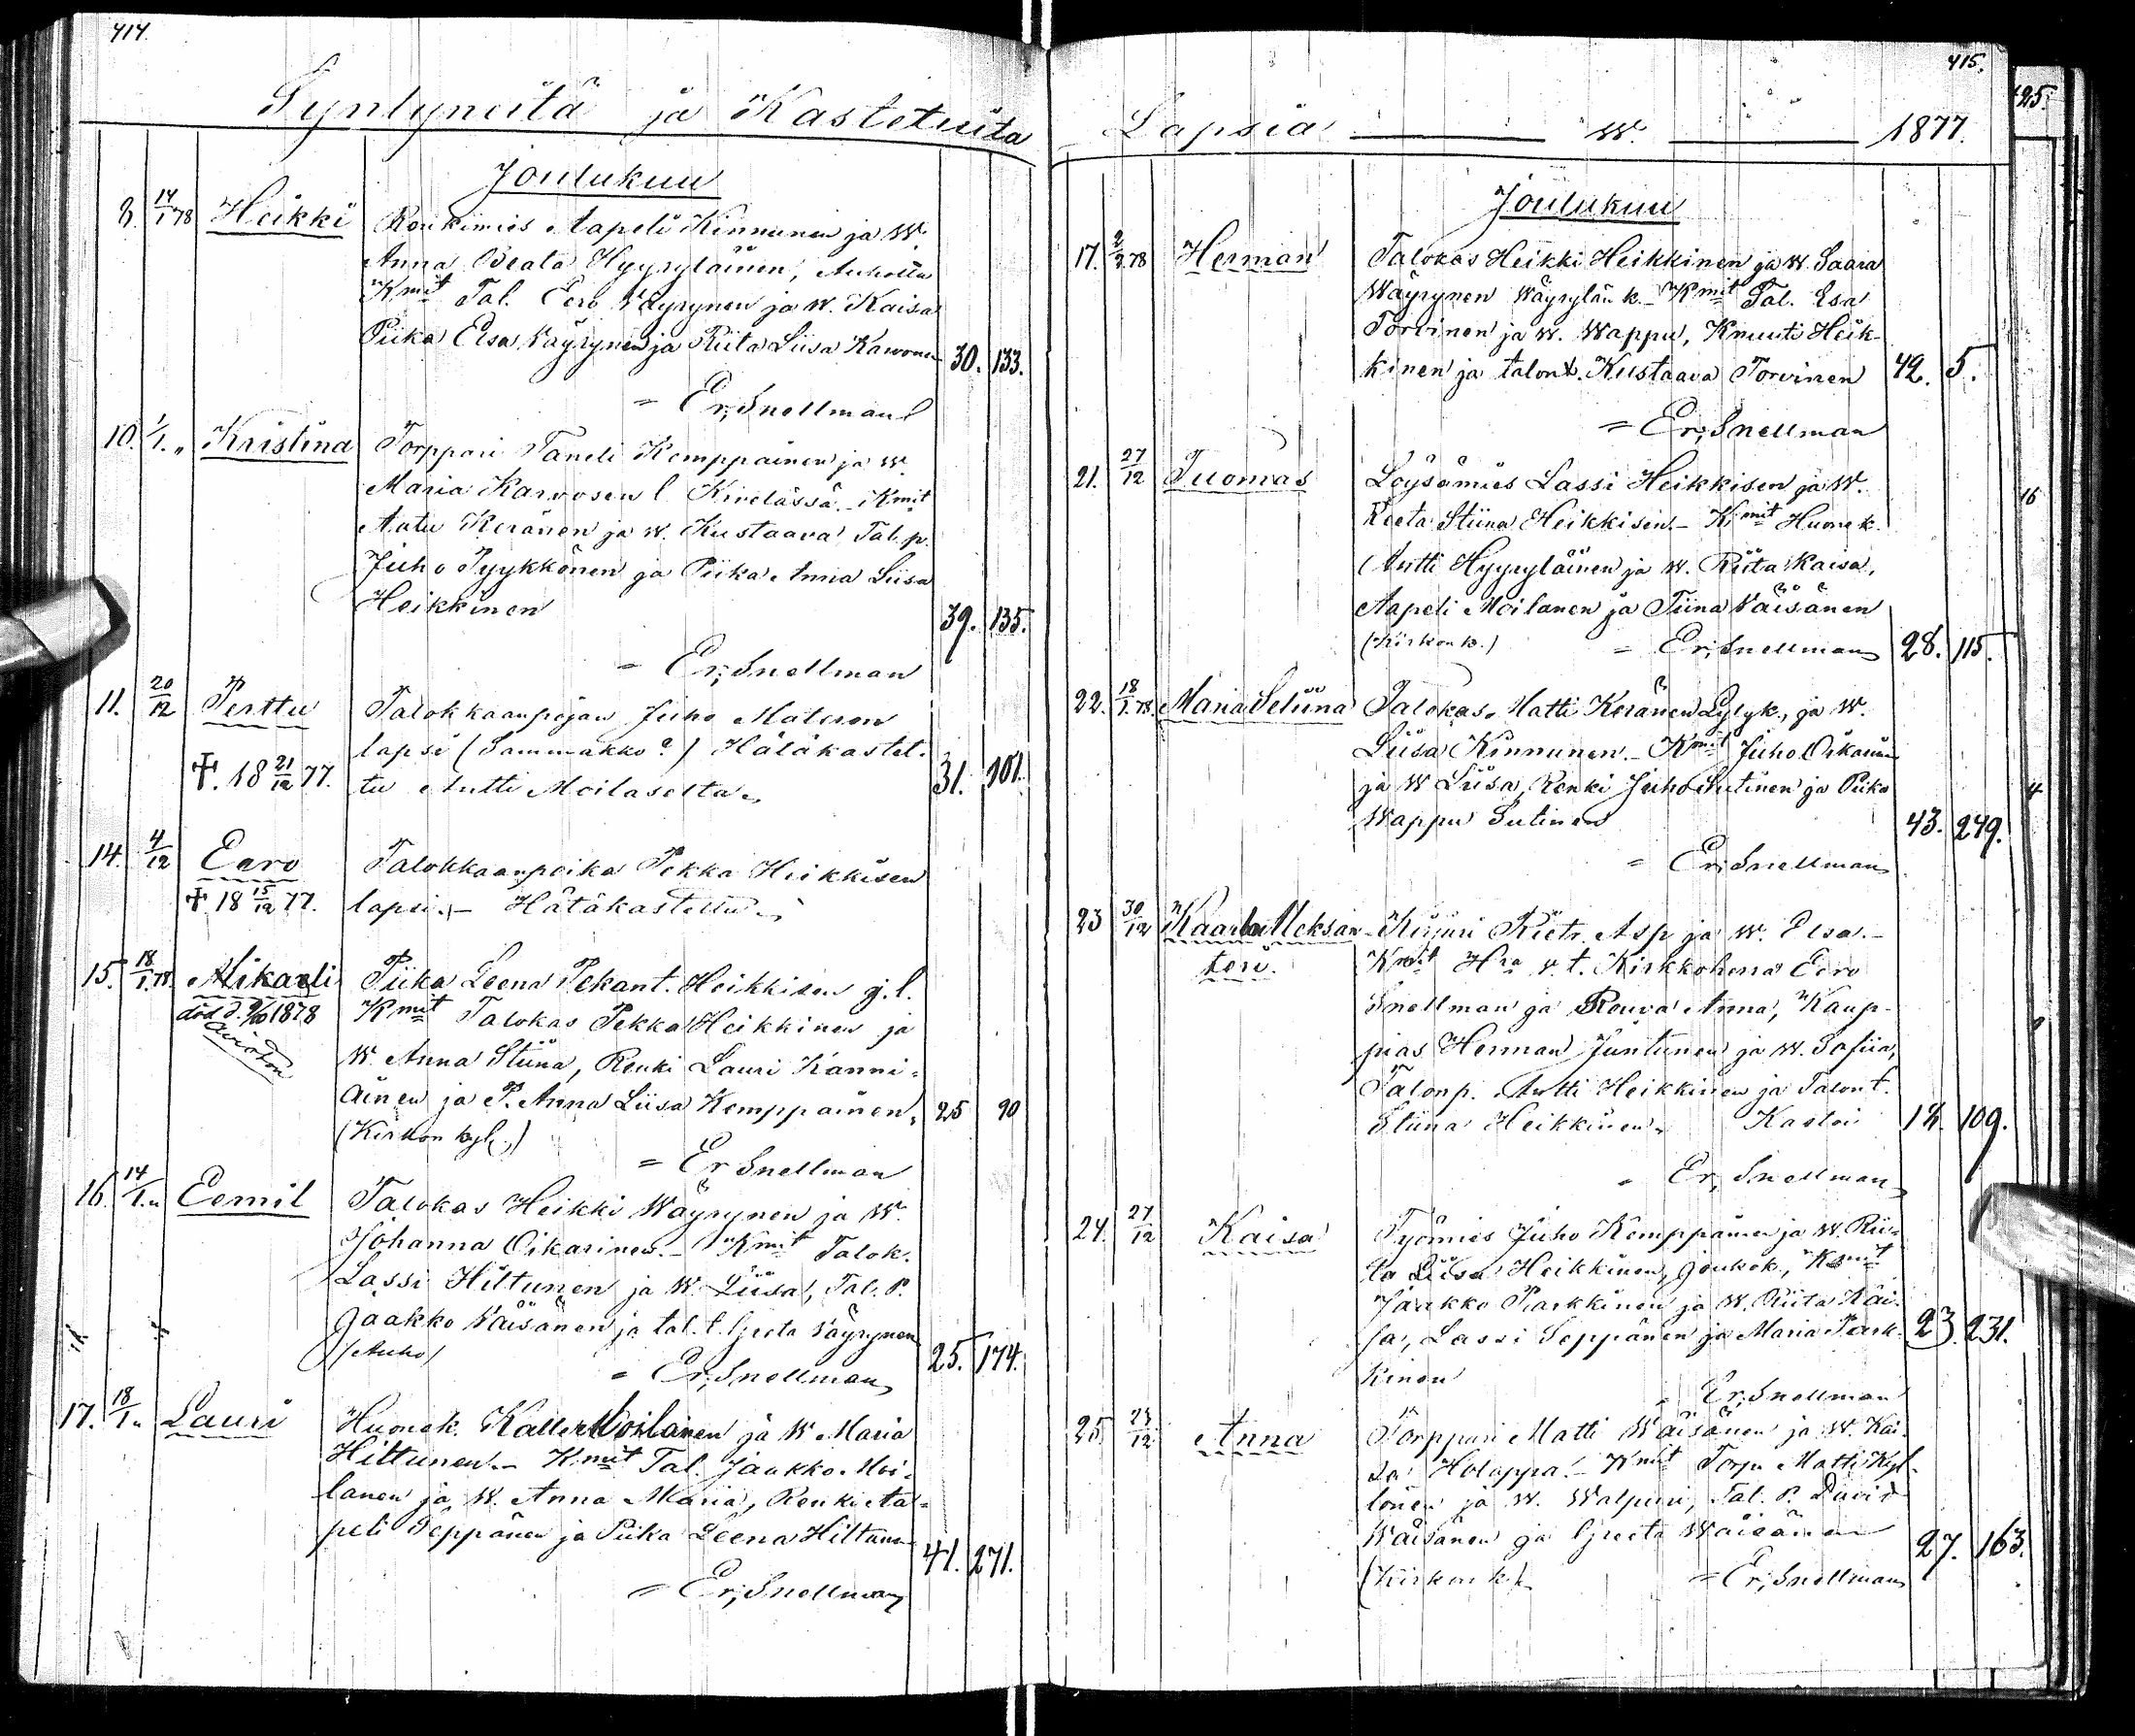 414.
Syntyneitä ja Kastetuita
Joulukuu
8. 14/1 78 Heikki Renkimies Aapeli Kinnunen ja W.
Anna Beata Hyyryläinen, Auholta
Kmit Tal. Eero Väyrynen ja W. Kaisa
Piika Elsa Väyrynen ja Riita Liisa Karvonen 30. 133.
= Er. Snellman
10. 1/1 „ Kristina Torppari Taneli Kemppainen ja W.
Maria Karvosen l. Kivelässä. - Kmit
Aatu Keränen ja W. Kustaava Tal. p.
Juho Pyykkönen ja Piika Anna Liisa
Heikkinen 39. 135.
= Er. Snellman
11. 20/12 Perttu Talokkaanpojan Juho Materon
lapsi (Sammakko?) Hätäkastet-
✝. 18 21/12 77. tu Antti Moilaselta. 31. 101.
14. 4/12 Eero Talokkaanpoika Pekka Heikkisen
✝. 18 15/12 77. lapsi. - Hätäkastettu.
15. 18/1.78. Mikaeli Piika Leena Pekant. Heikkisen j. l.
död d. 9/10 1878 Kmit Talokas Pekka Heikkinen ja
W. Anna Stiina, Renki Lauri Kanni-
ainen ja P. Anna Liisa Kemppainen, 25 90
(Kirkon kyl.)
= Er Snellman
16. 14/1 „ Eemil Talokas Heikki Wäyrynen ja W.
Johanna Oikarinen. - Kmit Talok.
Lassi Hiltunen ja W. Liisa, Tal. P.
Jaakko Väisänen ja tal. t. Greeta Väyrynen
(Auho) 25. 174.
= Er. Snellman
17. 18/1 „ Lauri Huonek. Kalle Moilanen ja W Maria
Hiltunen. - Kmit Tal. Jaakko Moi-
lanen ja W. Anna Maria, Renki Aa-
peli Seppänen ja Piika Leena Hiltunen 41. 271.
= Er. Snellman
415.
25.
Lapsia W. 1877.
Joulukuu
17. 2/2 78 Herman Talokas Heikki Heikkinen ja W. Saara
Wäyrynen Wäyrylän k. - Kmit Tal. Esa
Torvinen ja W. Wappu, Knuuti Heik-
kinen ja talont. Kustaava Torvinen 42. 5.
= Er. Snellman
21. 27/12 Tuomas Löysämies Lassi Heikkisen ja W.
Reeta Stiina Heikkisen. - Kmit Huonek.
Antti Hyyryläinen ja W. Riita Kaisa,
Aapeli Moilanen ja Tiina Väisänen
(Kirkon k.) = Er. Snellman 28. 115.
22. 18/1.78. Maria Stiina Talokas. Matti Keränen Lylyk., ja W.
Liisa Kinnunen. - Kmit Juho Oikarinen
ja W Liisa, Renki Juho Sutinen ja Piika
Wappu Sutinen 43. 249.
= Er. Snellman
23 30/12 Kaarlo Aleksan- Kirjuri Pietr. Asp ja W. Elsa. -
teri. Kmit Hra v. t. Kirkkoherra Eero
Snellman ja Rouva Anna, Kaup-
pias Herman Juntunen ja W. Sofiia,
Talonp. Antti Heikkinen ja Talont.
Stiina Heikkinen. Kastoi 18. 109.
= Er. Snellman
24. 27/12 Kaisa Työmies Juho Kemppainen ja W. Rii-
ta Liisa Heikkinen, Joukok., Kmit
Jaakko Parkkinen ja W. Riita Kai-
sa, Lassi Seppänen ja Maria Park- 23. 231.
kinen
= Er. Snellman
25. 27/12 Anna Torppari Matti Wäisänen ja W. Kai-
sa Holappa. - Kmit Torp. Matti Kyl-
lönen ja W. Walpuri, Tal. P. David
Wäisänen ja Greeta Wäisänen 27. 163.
(Kirkon k.) = Er. Snellman